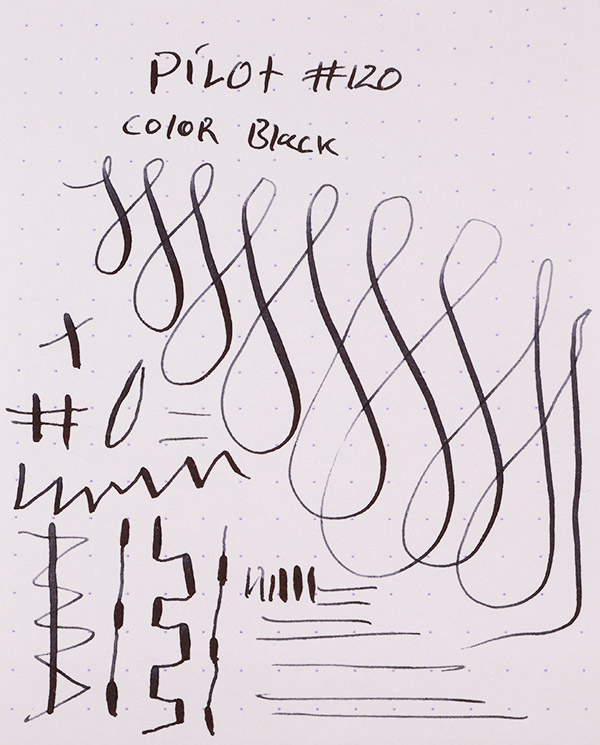 PiLOt #120
COlOR Black